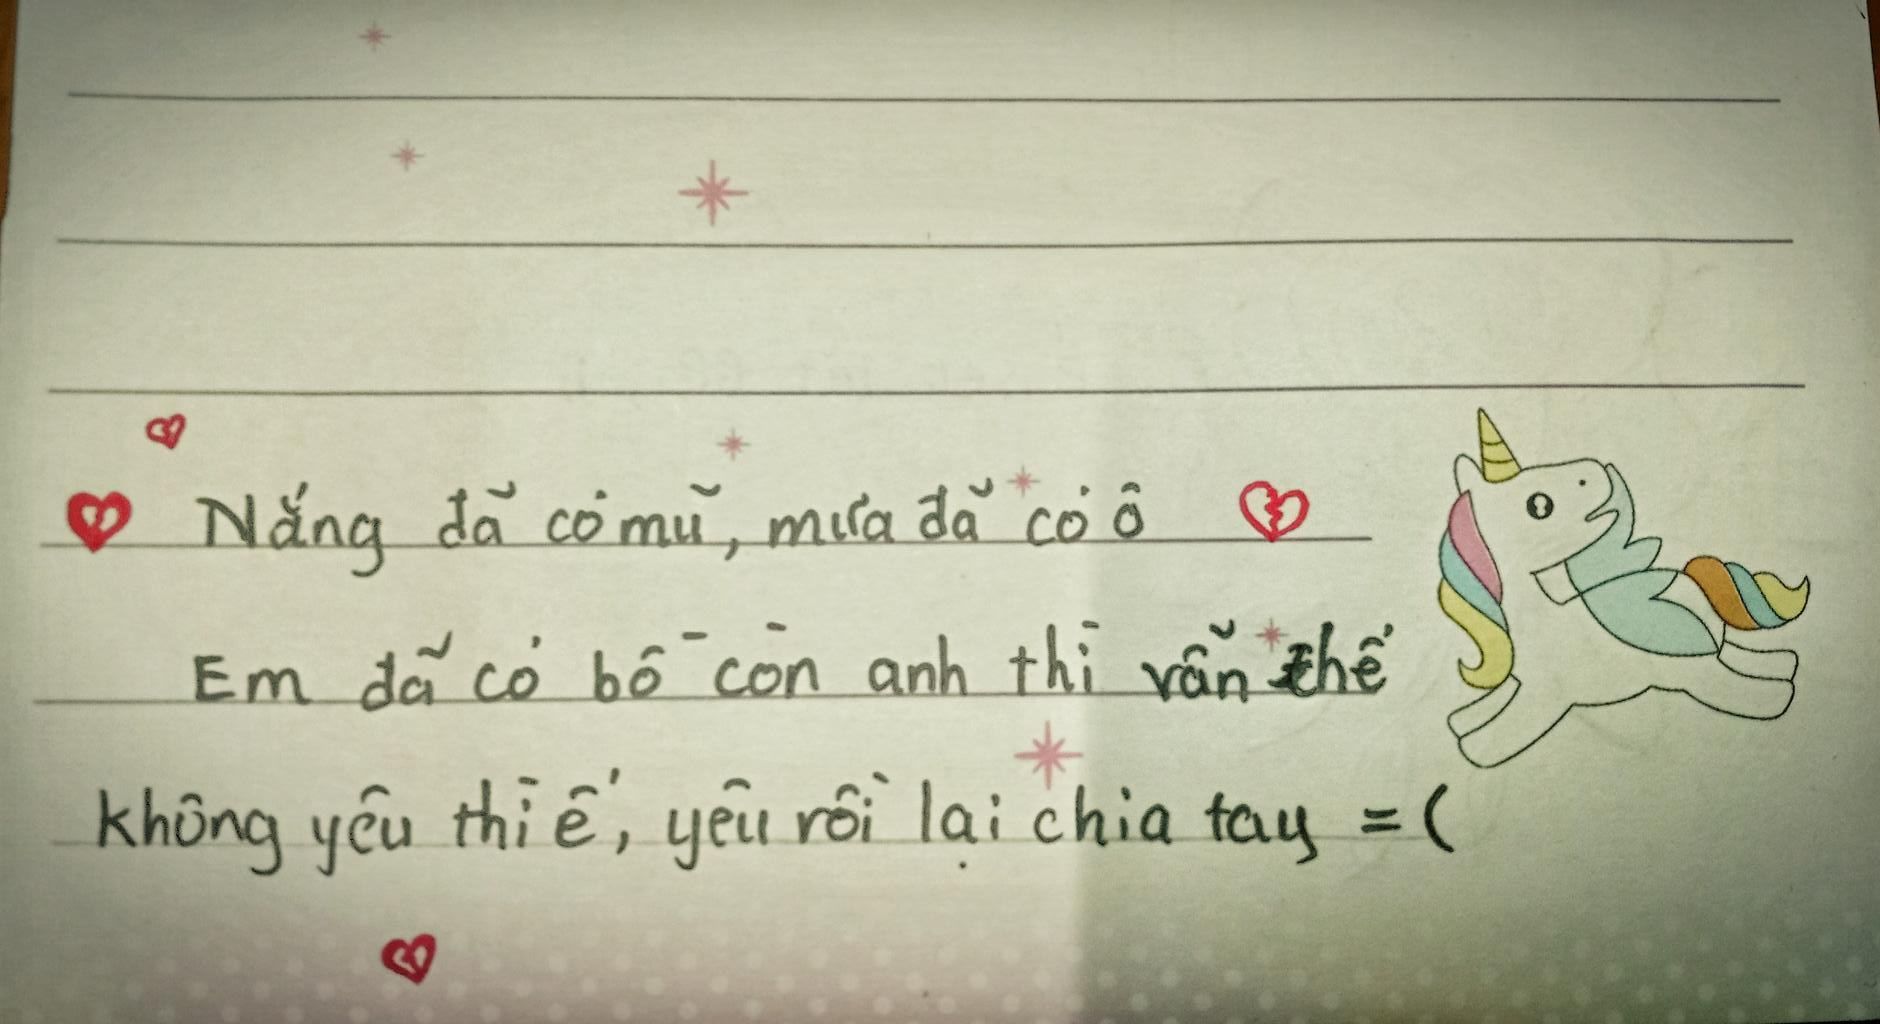 Nắng đã có mũ, mưa đã có ô
Em đã có bồ còn anh thì vẫn thế
không yêu thì ế, yêu rồi lại chia tay =(